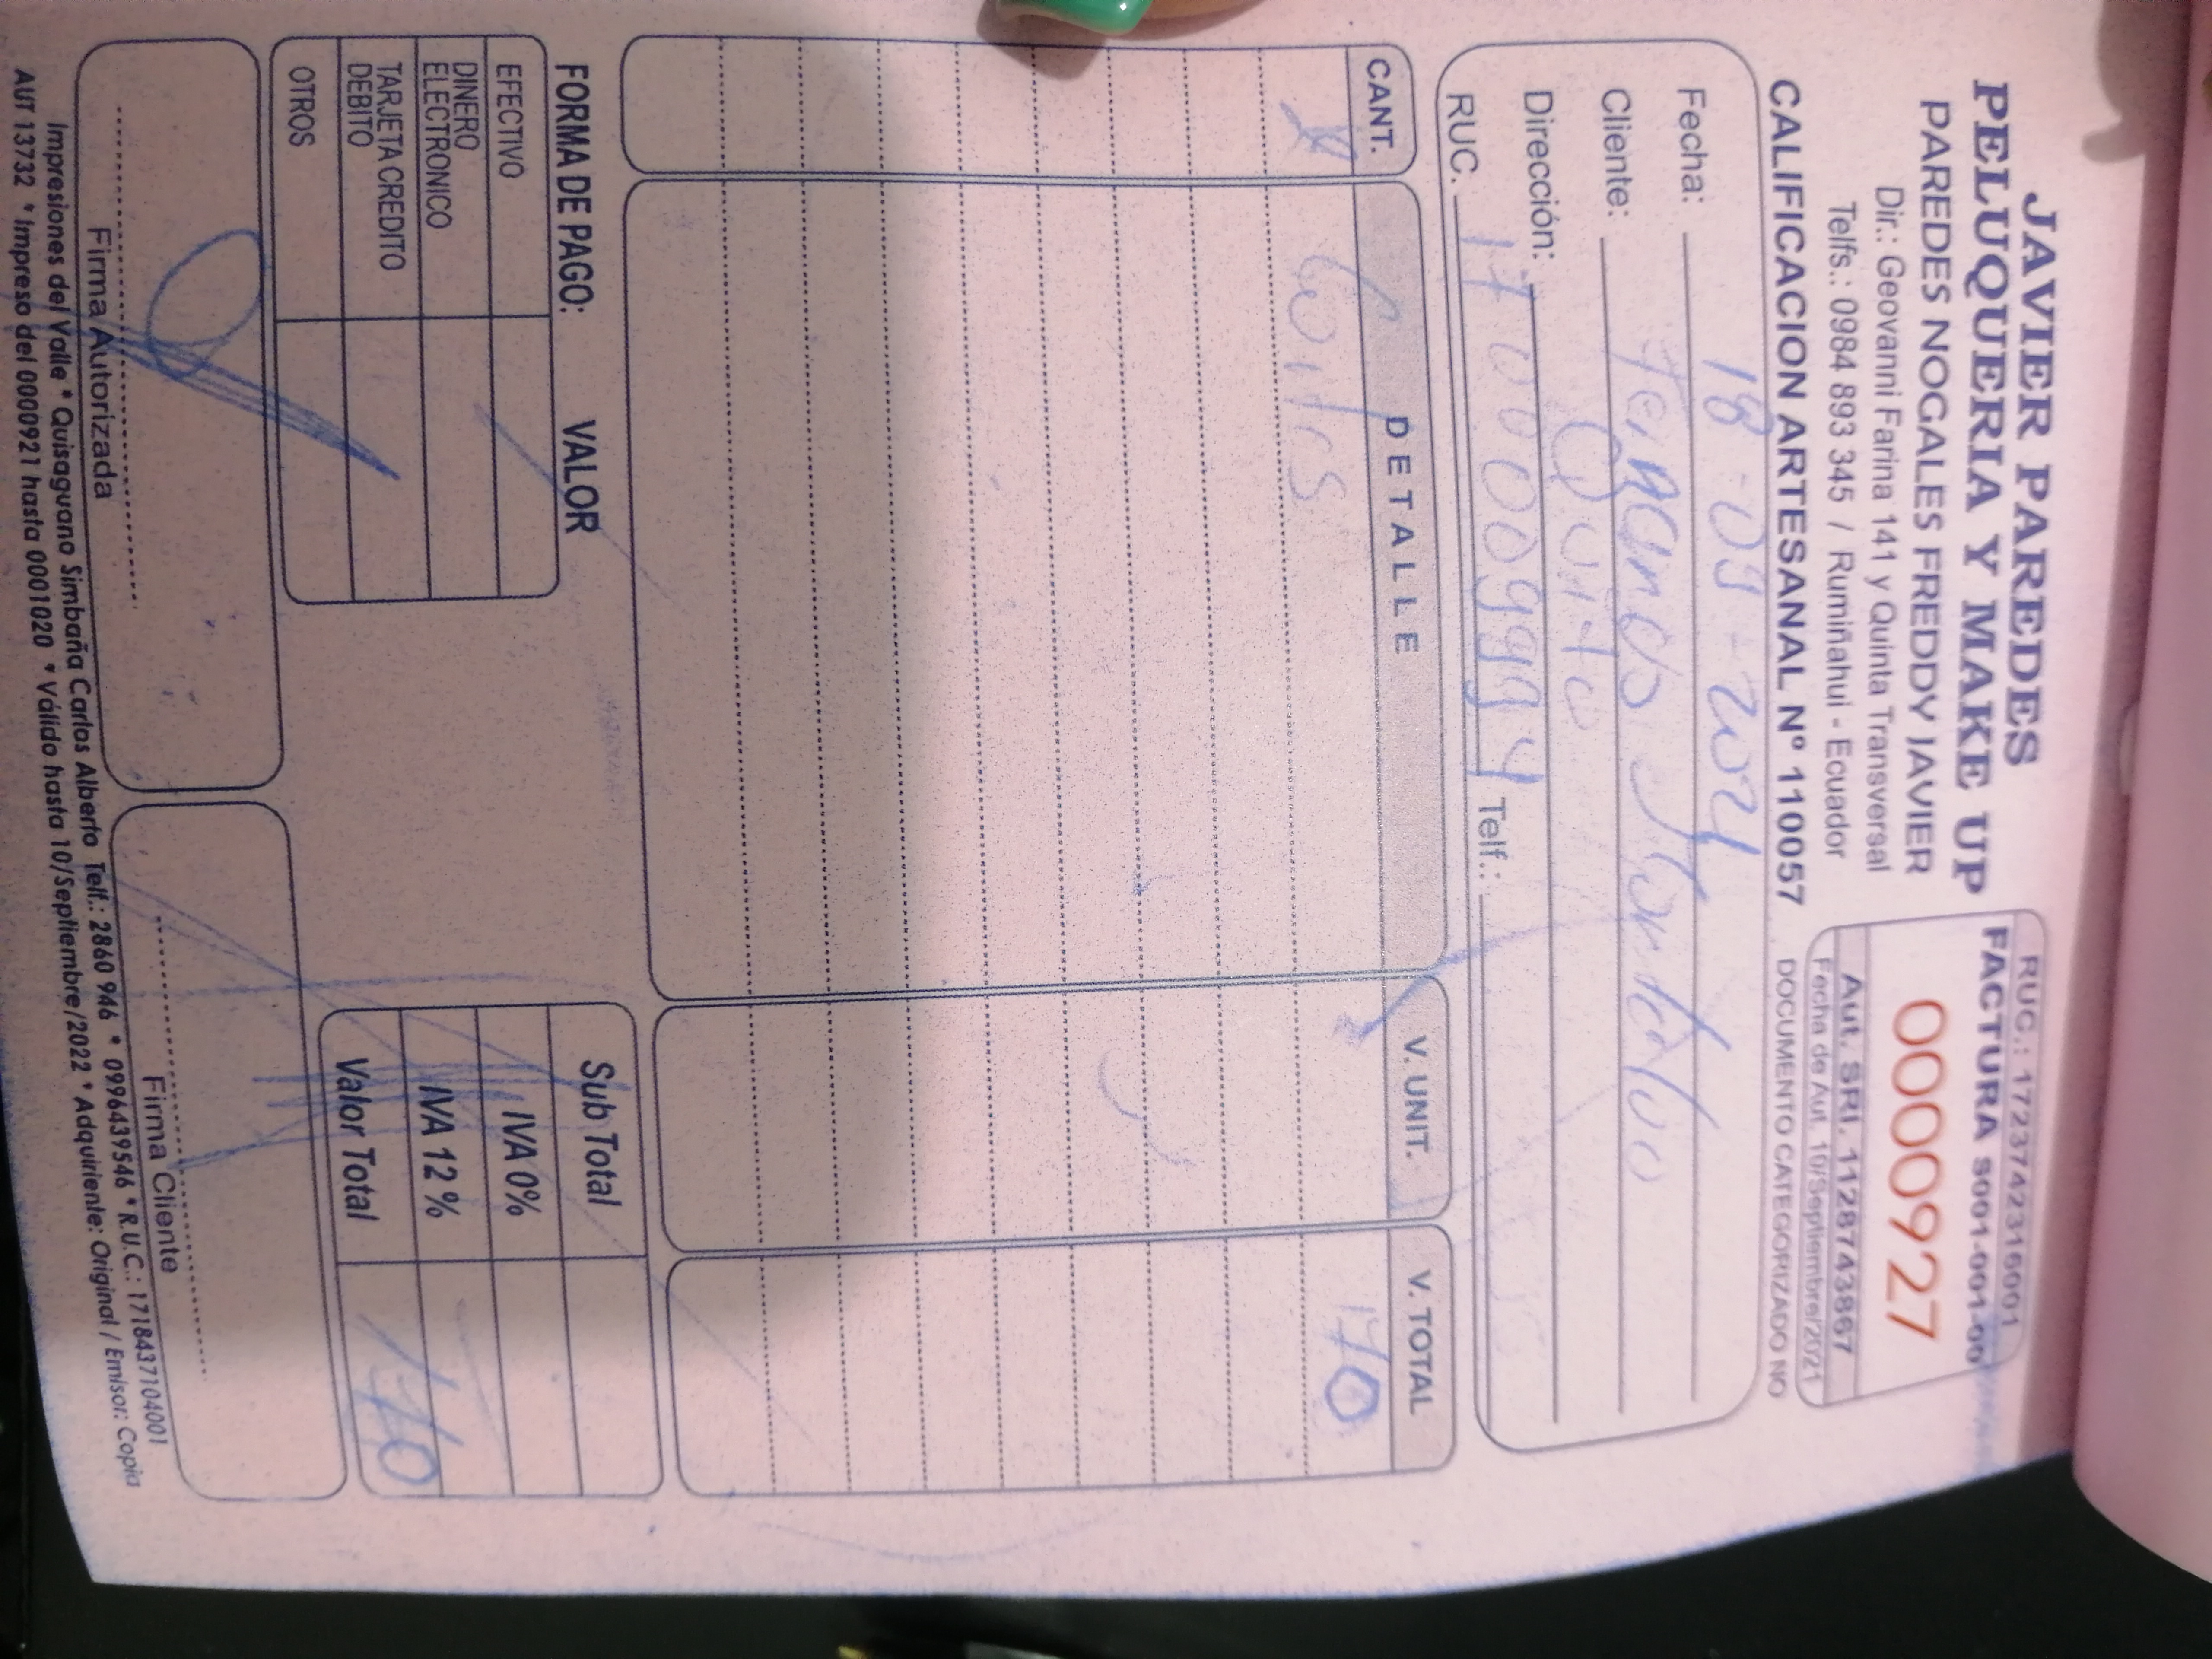 JAVIER PAREDES
PELUQUERIA Y MAKE UP
PAREDES NOGALES FREDDY JAVIER
Dir.: Geovanni Farina 141 y Quinta Transversal
Telfs.: 0984 893 345 / Rumiñahui - Ecuador
CALIFICACION ARTESANAL Nº 110057
RUC.: 1723742316001
FACTURA S001-001-00
0000927
Aut. SRI. 1128743867
Fecha de Aut. 10/Septiembre/2021
DOCUMENTO CATEGORIZADO NO
Fecha: 18-09-2021
Cliente: Fernando
Dirección: Quito
RUC. Telf.:
CANT. DETALLE V. UNIT. V. TOTAL
Cortes
FORMA DE PAGO: VALOR
EFECTIVO
DINERO ELECTRONICO
TARJETA CREDITO DEBITO
OTROS
Sub Total
IVA 0%
IVA 12 %
Valor Total
Firma Autorizada
Firma Cliente
Impresiones del Valle * Quisaguano Simbaña Carlos Alberto Telf.: 2860 946 * 0996439546 * R.U.C.: 1718437104001
AUT 13732 * Impreso del 0000921 hasta 0001020 * Válido hasta 10/Septiembre/2022 * Adquiriente: Original / Emisor: Copia